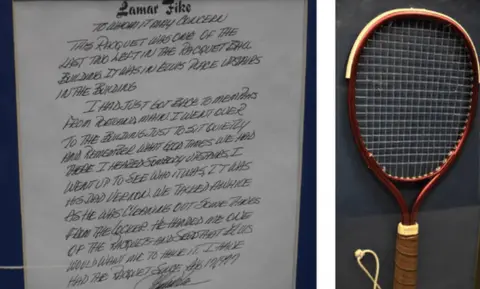 Lamar Fike
TO WHOM IT MAY CONCERN
THIS RACQUET WAS ONE OF THE
LAST TWO LEFT IN THE RACQUET BALL
BUILDING. IT WAS IN ELVIS PLACE UPSTAIRS
IN THE BUILDING
I HAD JUST GOT BACK TO MEMPHIS
FROM PORTLAND, MAIN. I WENT OVER
TO THE BUILDING JUST TO SIT QUIETLY
AND REMEMBER WHAT GOOD TIMES WE HAD
THERE. I HEARD SOMEBODY UPSTAIRS, I
WENT UP TO SEE WHO IT WAS, IT WAS
HIS DAD VERNON. WE TALKED AWHILE
AS HE WAS CLEANING OUT SOME THINGS
FROM THE LOCKER. HE HANDED ME ONE
OF THE RACQUETS AND SAID THAT ELVIS
WOULD WANT ME TO HAVE IT. I HAVE
HAD THE RACQUET SINCE 1977